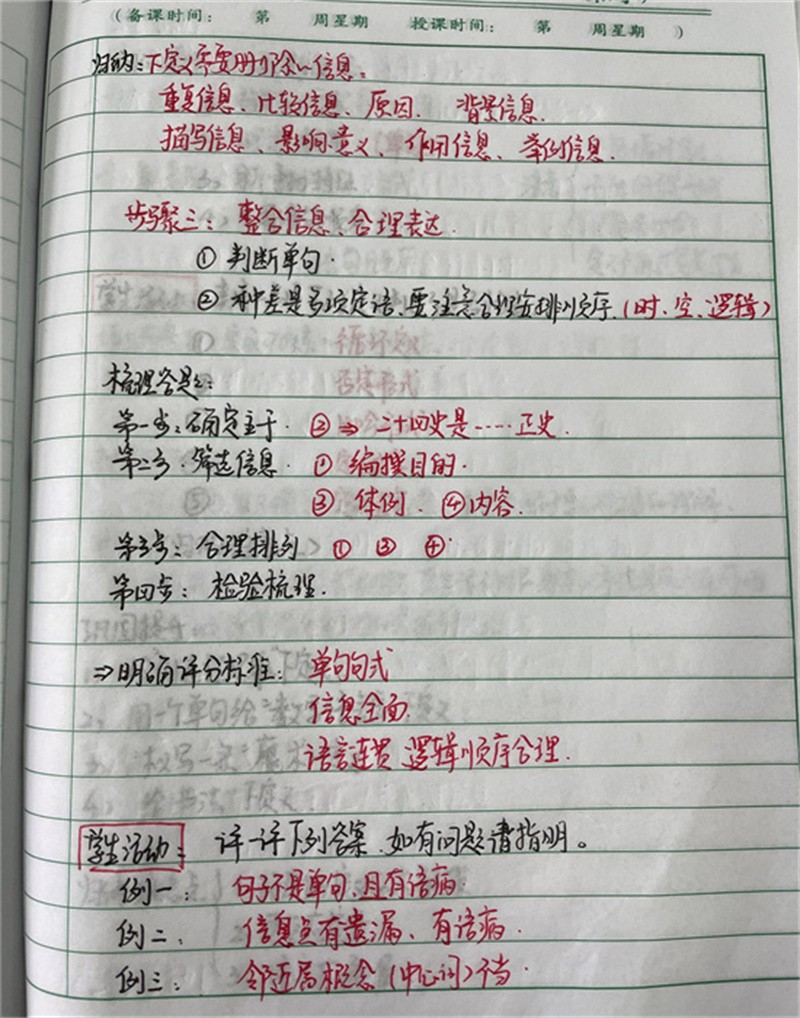 (（备课时间： 第 周星期 授课时间： 第 周星期 ）)
归纳：下定义需要删除信息。
重复信息、比较信息、原因、背景信息.
描写信息、影响意义、作用信息、举例信息.
步骤三：整合信息、合理表达.
① 判断单句.
② 种差是多项定语，要注意合理安排顺序.(时、空、逻辑)
梳理答题：
第一步：确定主干. ② ⇒ 二十四史是……正史.
第二步. 筛选信息. ① 编撰目的.
③ 体例. ④内容.
第三步：合理排列 ① ③ ④.
第四步：检验梳理.
⇒明确评分标准：单句句式
信息全面.
语言连贯 逻辑顺序合理.
学生活动： 评一评下列答案，如有问题请指明。
例一： 句子不是单句，且有语病.
例二： 信息点有遗漏、有语病.
例三： 邻近属概念(中心词)不当.